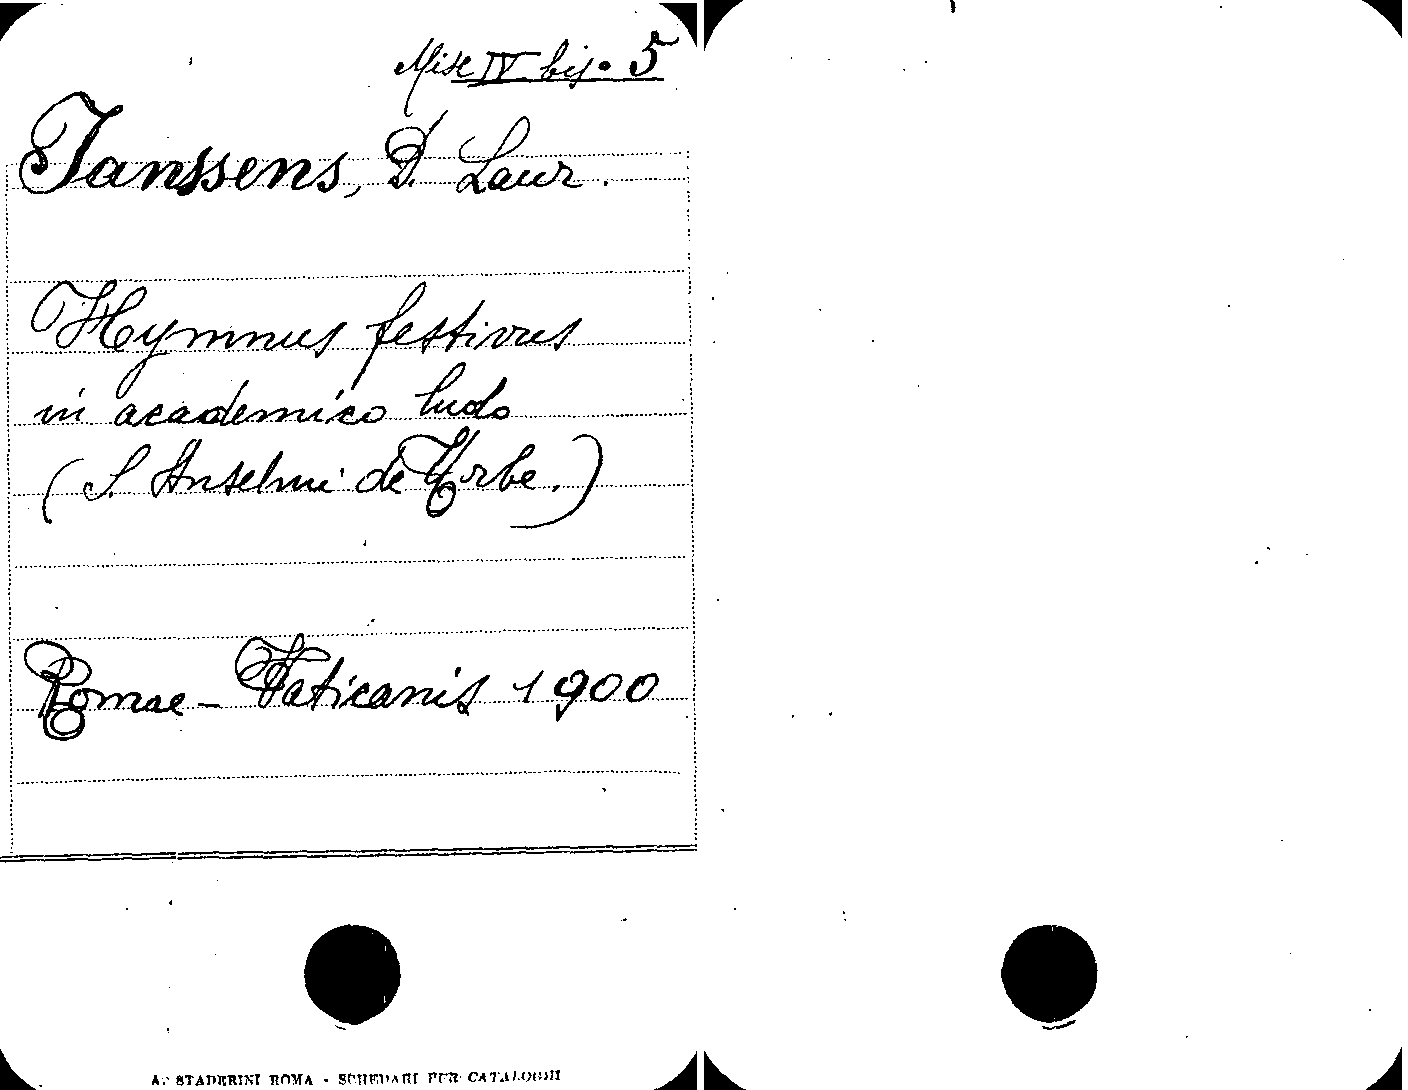 Misc IV bis. 5
Janssens, D. Laur.
Hymnus festivus
in academico ludo
(S. Anselmi de Urbe.)
Romae - Vaticanis 1900
A. STADERINI ROMA - SCHEDARI PER CATALOGHI